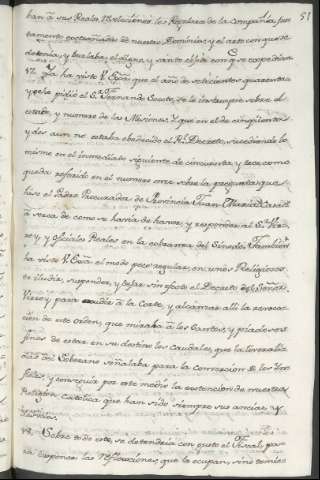 51
ban à sus Reales Resoluciones los Regulares de la Compañia, jus-
tamente extrañados de nuestros Dominios y el arte con que se
detenia, y burlaba, el digno, y santo objeto con que se expedian
17. Ya ha visto V. Exa. que el año de setecientos quarenta
y ocho pidió el S. Fernando Sexto, se le instruyese sobre el
estado, y numero de las Misiones, Y que en el de cinquenta
y dos aun no estaba obedecido el Rl. Decreto, sucediendo lo
mismo en el inmediato siguiente de cincuenta, y tres como
queda referido en el numero once sobre la pregunta que
hizo el Padre Procurador de Provincia Juan
à serca de como se havia de haver, y responder al S. Vir-
rey, y oficiales Reales en la cobranza del Sinodo. Tambien
ha visto V. Exa. el modo poco regular, en unos Religiosos
de eludir, suspender, y dejar sin efecto el Decreto del Señor
Virrey para acudir à la Corte, y alcanzar alli la revoca-
cion de este orden, que miraba à los Santos, y piadosos
fines de estar en su destino los caudales, que la liberali-
dad del Soberano señalaba para la conversion de los In-
fieles, y conseguir por este medio la extencion de nuestra
Religion Catolica que han sido siempre sus ancias, y
desvelos.
18. Sobre todo esto, se detendria con gusto el Fiscal, pa-
ra exponer las reflexiones, que le ocupan, sino temiese